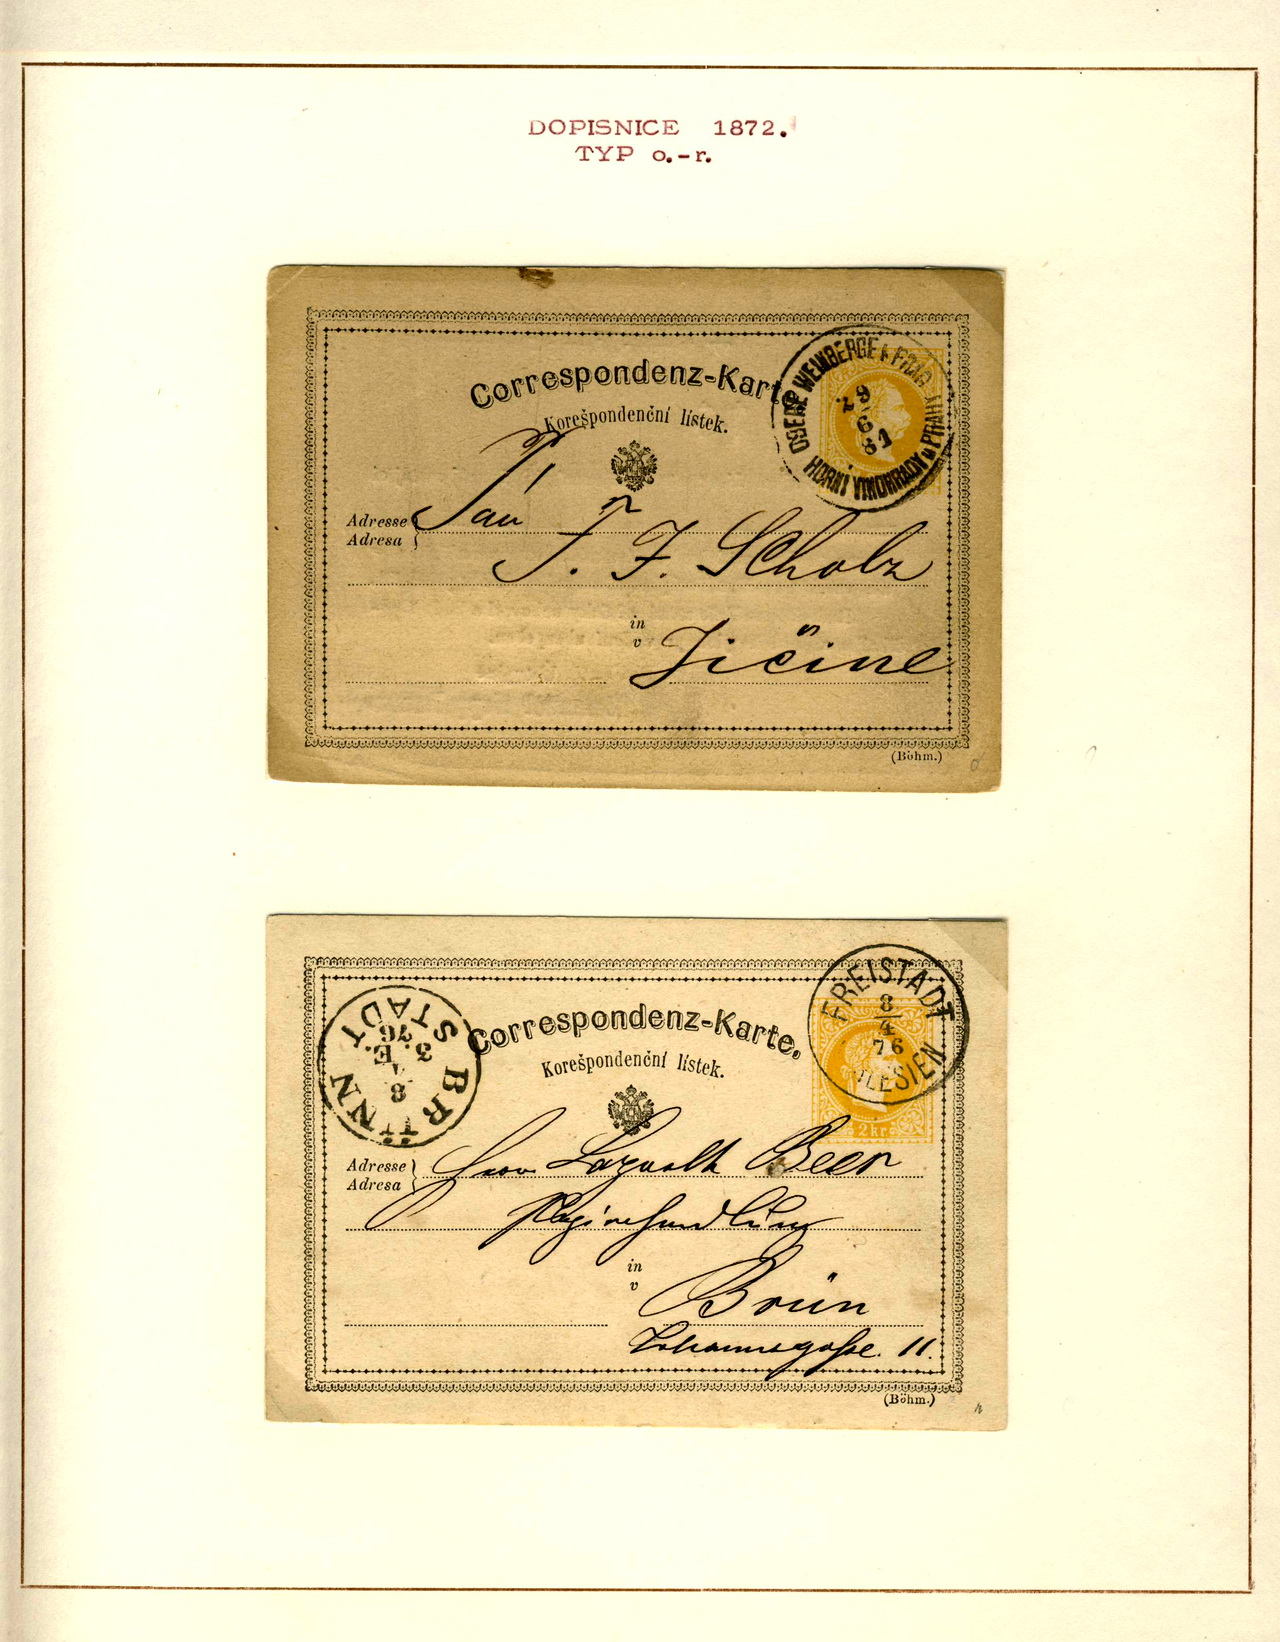 DOPISNICE 1872.
TYP o.-r.
Correspondenz-Karte
Korešpondenční lístek.
OBERE WEINBERGE b PRAG
29
6
81
HORNÍ VINOHRADY u PRAHY
Adresse
Adresa
Pán
F. F. Scholz
in
v
Jičíně
(Böhm.)
Correspondenz-Karte.
Korešpondenční lístek.
FREISTADT
8
4
76
BRÜNN
STADT
8
3.E.
76
2 kr
Adresse
Adresa
Herrn Beer
in
v
Brün
Johannesgasse. 11.
(Böhm.)